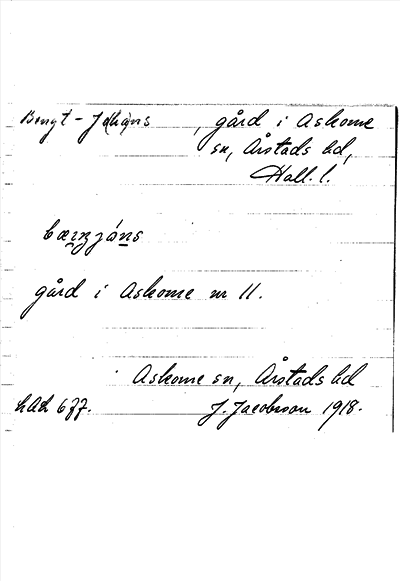 Bengt-Johans, gård i Askome
sn, Årstads hd,
Hall. l.
gård i Askome nr 11.
Askome sn, Årstads hd
J. Jacobsson 1918.